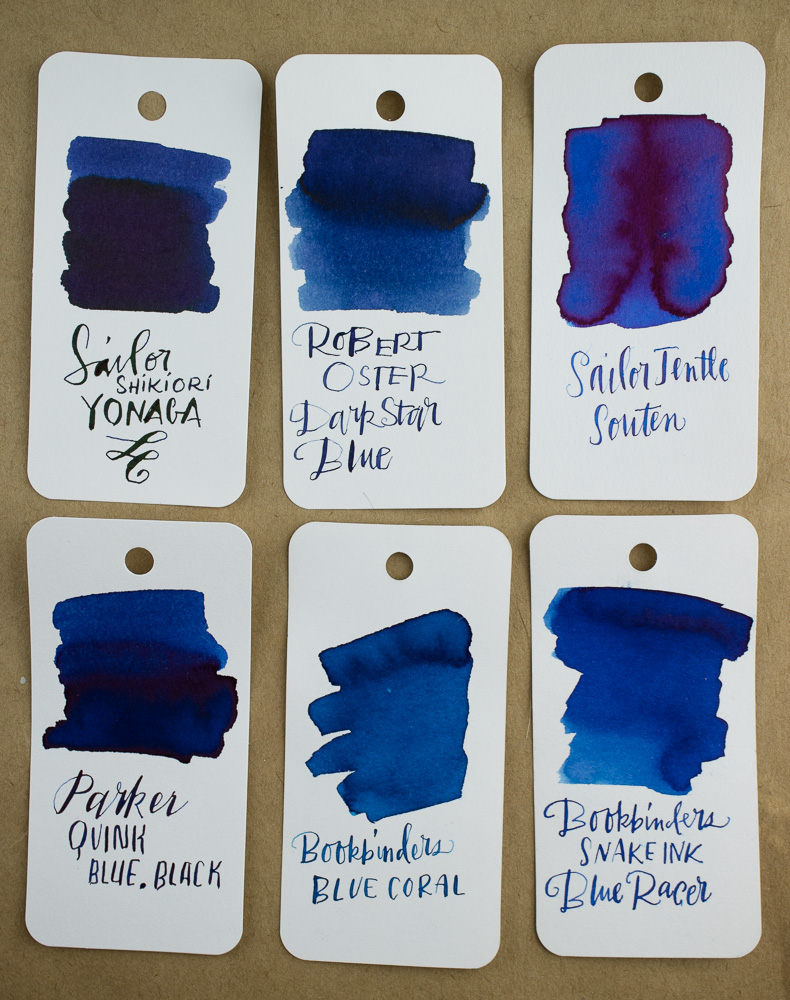 Sailor
SHIKIORI
YONAGA
ROBERT
OSTER
Dark Star
Blue
Sailor Jentle
Souten
Parker
QUINK
BLUE.BLACK
Bookbinders
BLUE CORAL
Bookbinders
SNAKE INK
Blue Racer